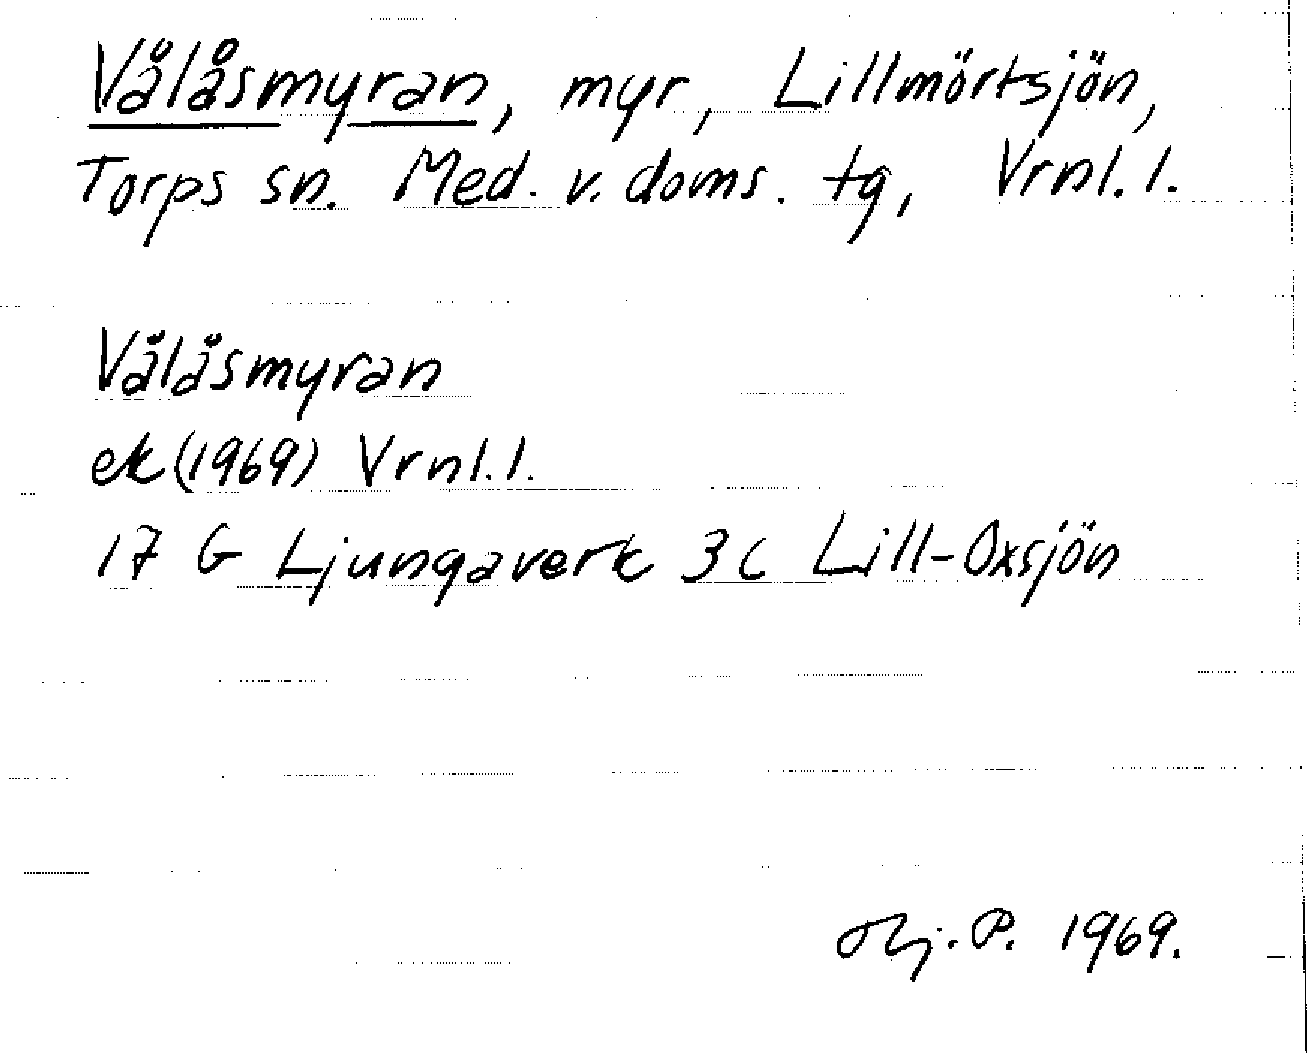 Vålåsmyran, myr, Lillmörtsjön,
Torps sn. Med. v. doms. tg, Vrnl. l.
Vålåsmyran
ek (1969) Vrnl. l.
17 G Ljungaverk 3c Lill-Oxsjön
Hj. P. 1969.